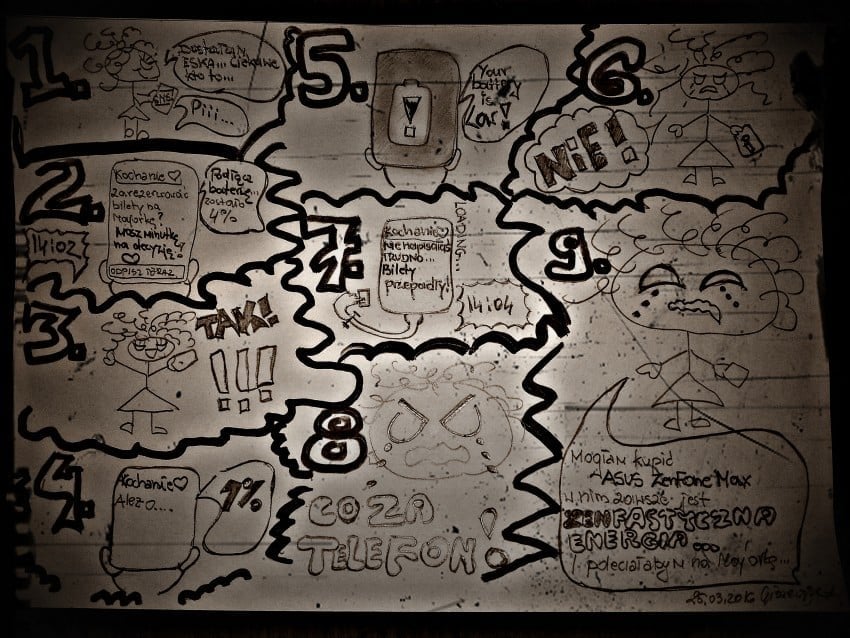 1.
Dostałam
ESKA... Ciekawe
kto to...
SMS!
Piii...
2.
Kochanie ♡
zarezerwować
bilety na
Majorkę?
Masz minutkę
na decyzję!
♡
ODPISZ TERAZ
Podłącz
baterię...
zostało
4%
14:02
3.
TAK!
!!!
4.
Kochanie ♡
Ale z o...
1%
5.
Your
battery
is
Low!
6.
NIE!
7.
Kochanie ♡
Nie napisałaś
TRUDNO...
Bilety
przepadły!
LOADING...
14:04
8
CO ZA
TELEFON!
9.
Mogłam kupić
ASUS ZenFone Max
w nim zawsze jest
ZENFASTYCZNA
ENERGIA
i poleciałabym na Majorkę...
25.03.2016